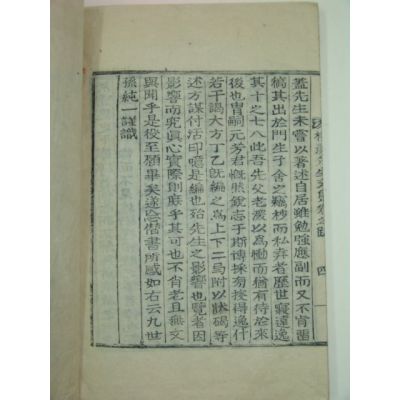 蓋先生未嘗以著述自居雖勉強應副而又不肯留
稿其出於門生子舍之竊抄而私弆者歷世寢遠逸
其十之七八此吾先父老深以爲慟而猶有待於來
後也胄嗣元芳君慨然銳志于斯博採旁搜得逸什
若干謁大方丁乙旣編爲上下二局附以狀碣等
述方謀付活印噫是編也殆先生之影響也覽者因
影響而究其心實際則庶其可也不肖老且無文
與聞乎是役至願畢矣遂忘僭書所感如右云九世
孫純一謹識
先生文集卷之四 四